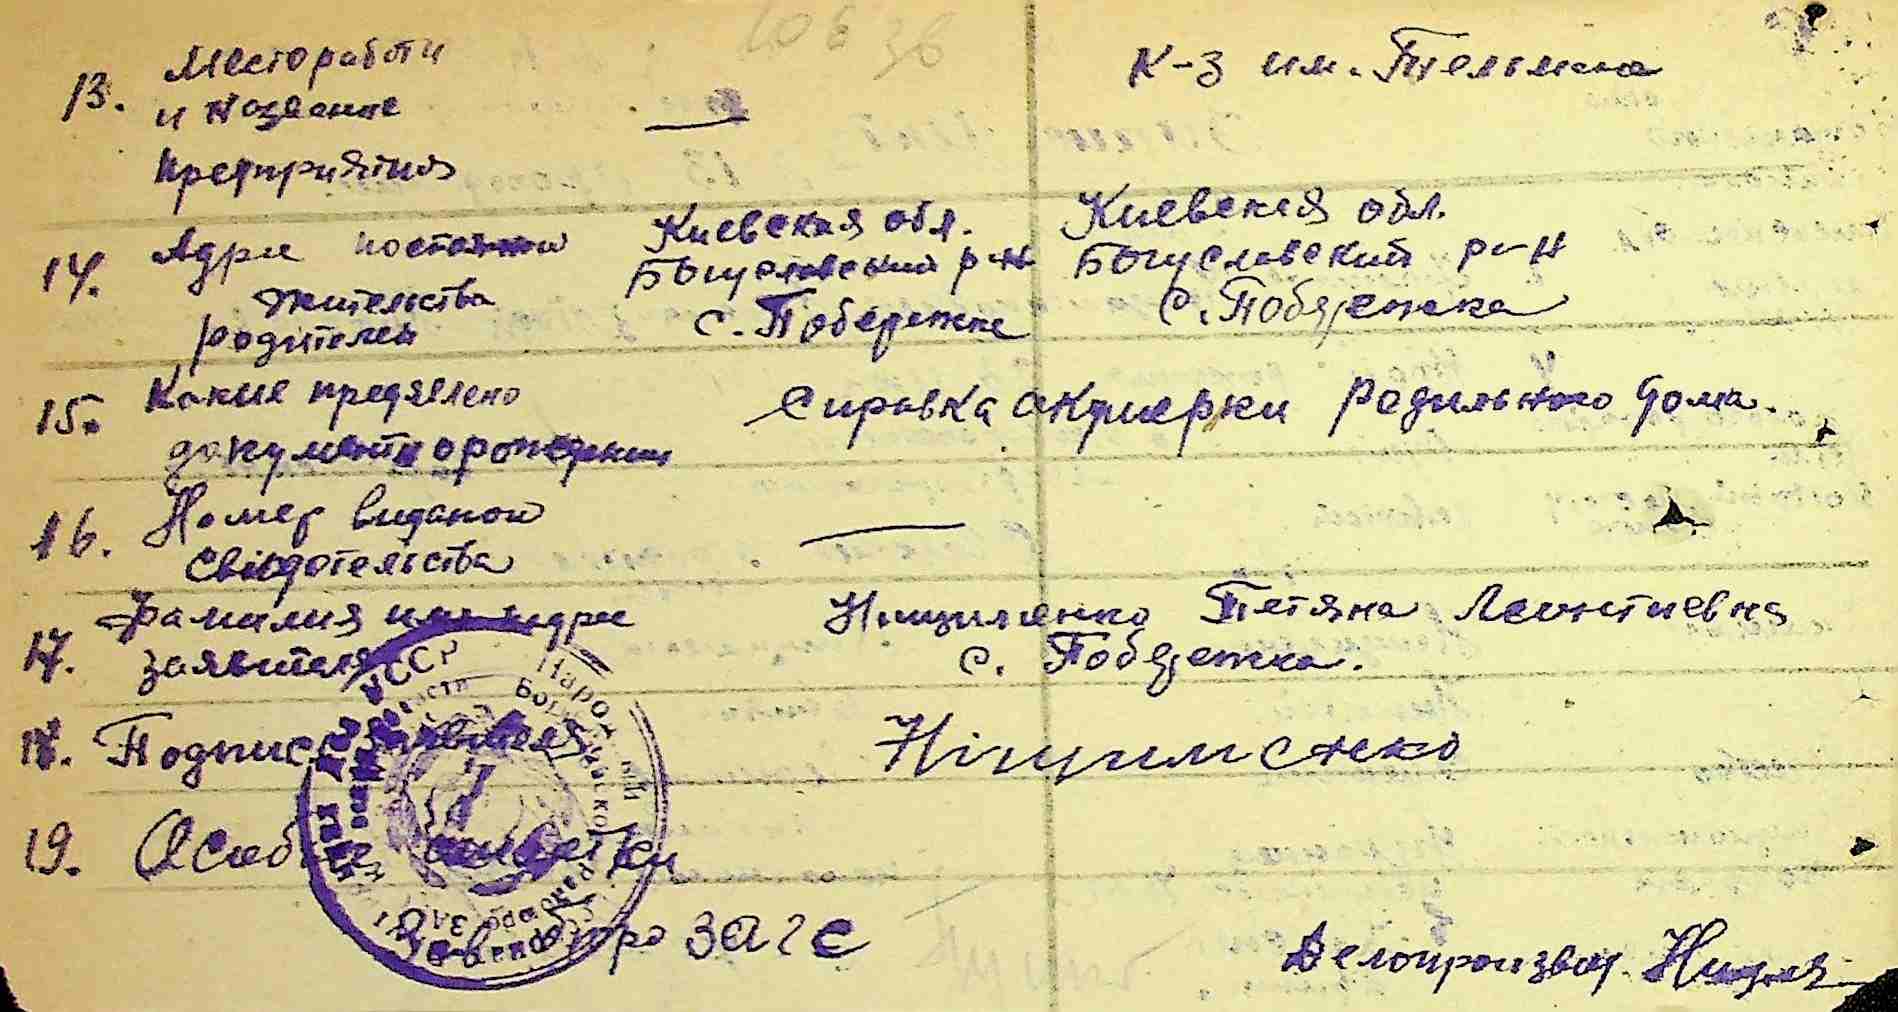 13. Место работи
и название
предприятия
К-з им. Тельмана
14. Адрес постояной
жительства
родителей
Киевская обл.
Богуславский р-н
с. Побережка
Киевская обл.
Богуславский р-н
с. Побережка
15. Какие предявлено
документи о рождении
Справка акушерки родильного дома.
16. Номер виданой
свідотельства
17. Фамилия имя и адрес
заявителя
Нищименко Тетяна Леонтиевна
с. Побережка.
18. Подпись заявителя
Ніщименко
19. Особые отметки
Зав бюро загс
Делопроизвод.